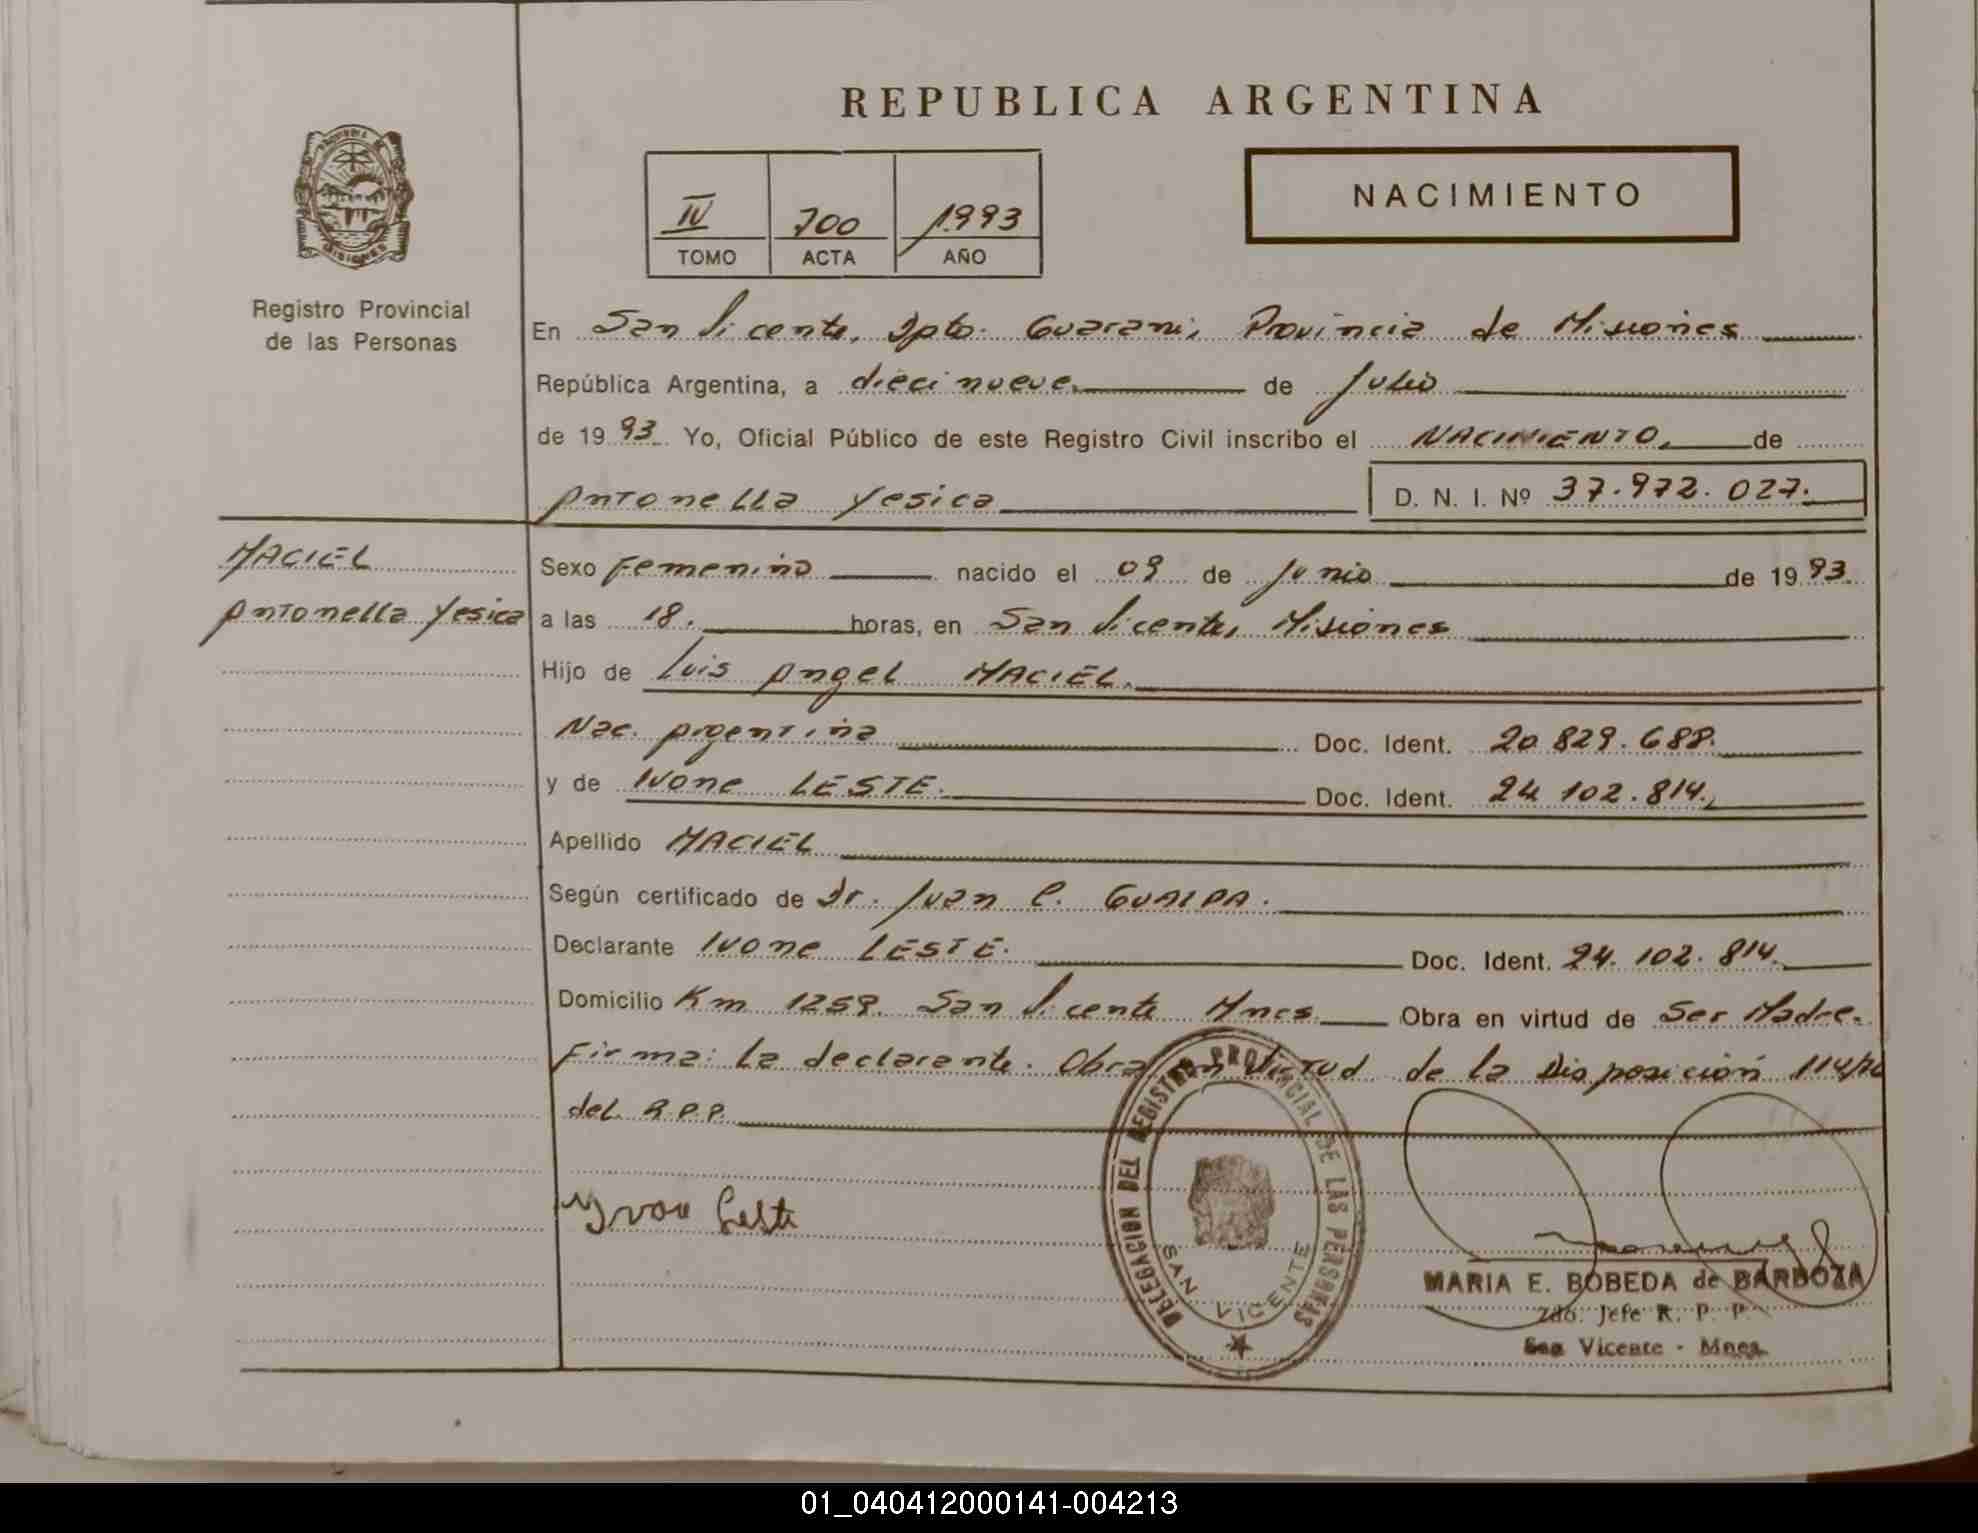 REPUBLICA ARGENTINA
NACIMIENTO
IV 700 1993
TOMO ACTA AÑO
MISIONES
Registro Provincial
de las Personas
En San Vicente, Dpto. Guarani, Provincia de Misiones
República Argentina, a diecinueve. de Julio
de 1993. Yo, Oficial Público de este Registro Civil inscribo el NACIMIENTO, de
Antonella Yesica D. N. I. Nº 37.972.027.
MACIEL
Antonella Yesica
Sexo Femenino nacido el 09 de Junio de 1993.
a las 18. horas, en San Vicente, Misiones
Hijo de Luis Angel MACIEL.
Nac. Argentina Doc. Ident. 20.829.688.
y de IVONE LESTE. Doc. Ident. 24.102.814.
Apellido MACIEL
Según certificado de Dr. Juan C. GUALPA.
Declarante IVONE LESTE. Doc. Ident. 24.102.814.
Domicilio Km 1259. San Vicente Mnes. Obra en virtud de Ser Madre.
Firma: La declarante. Obra en Virtud de la Disposición
del R.P.P.
Leste
DELEGACION DEL REGISTRO PROVINCIAL DE LAS PERSONAS
SAN VICENTE
MARIA E. BOBEDA de BARBOZA
2do. Jefe R. P. P.
San Vicente - Mnes.
01_040412000141-004213